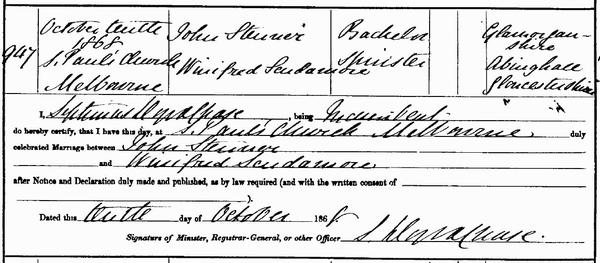 947
October tenth 1868 John Bachelor Glamorgan-
S. Paul's Church Winifred Scudamore Spinster shire
Melbourne Abinghall
Gloucestershire
I, Septimus Lloyd Chase, being Incumbent
do hereby certify, that I have this day, at S. Paul's Church Melbourne duly
celebrated Marriage between John
and Winifred Scudamore
after Notice and Declaration duly made and published, as by law required (and with the written consent of
).
Dated this tenth day of October 1868
Signature of Minister, Registrar-General, or other Officer S. Lloyd Chase.